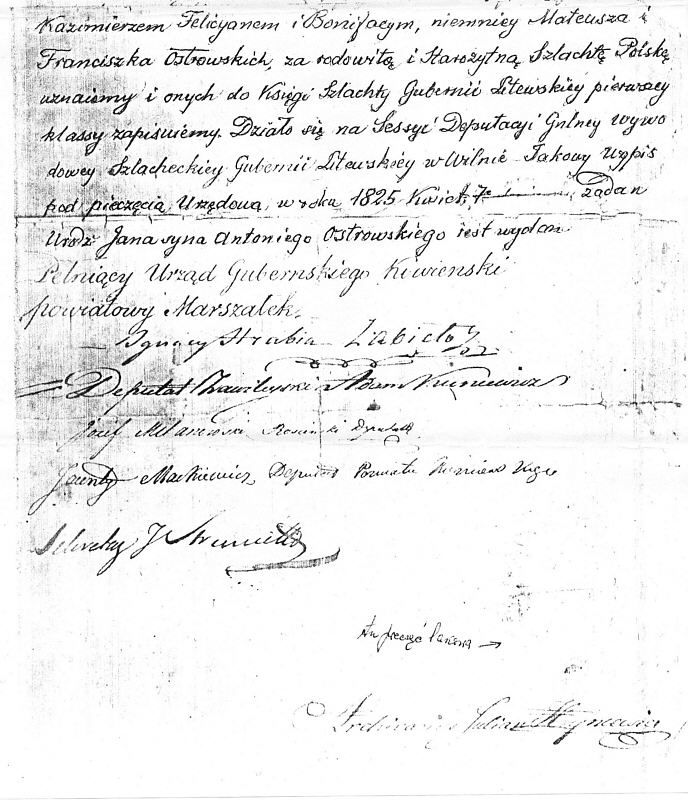 Kazimierzem Felicyanem i Bonifacym, niemniey Mateusza i
Franciszka Ostrowskich, za rodowitą i Starożytną Szlachtę Polską
uznaiemy i onych do Księgi Szlachty Gubernii Litewskiéy pierwszey
klassy zapisuiemy. Działo się na Sessyi Deputacyi Gnlney wywo
dowey Szlacheckiéy Gubernii Litewskiéy w Wilnie Jakowy Wypis
pod pieczęcią Urzędową, w roku 1825 Kwiet. 7e żądan
Urodz. Jana syna Antoniego Ostrowskiego iest wydan
Pełniący Urząd Gubernskiego Kiwienski
powiatowy Marszałek.
Ignacy Hrabia Zabiełło
Deputat Zawileyski Adam
Józef Deputat
Mackiewicz Deputat Powiatu
Sekretarz J
tu pieczęć →
Julian